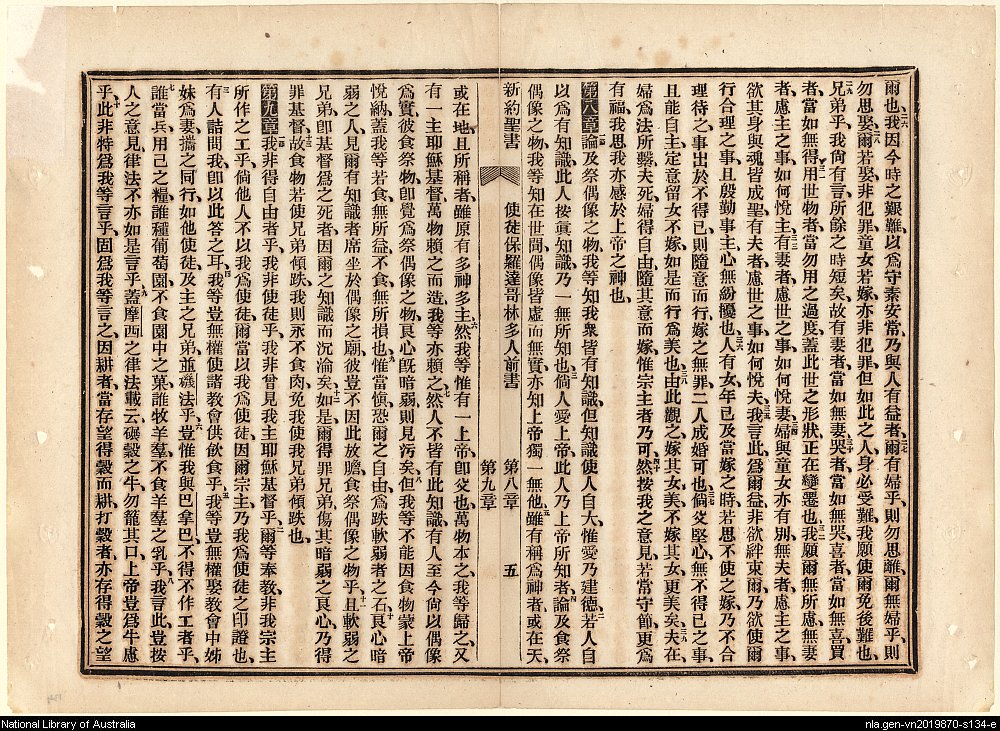 爾也、我因今時之艱難、以爲守素安常、乃與人有益者、爾有婦乎、則勿思離、爾無婦乎、則
勿思娶、爾若娶非犯罪、童女若嫁、亦非犯罪、但如此之人、身必受難、我願使爾免後難也、
兄弟乎、我尙有言、所餘之時短矣、故有妻者當如無妻、哭者當如無哭、喜者當如無喜、買
者當如無得、用世物者當勿用之過度、蓋此世之形狀正在變遷也、我願爾無所慮、無妻
者慮主之事、如何悅主、有妻者慮世之事、如何悅妻、婦與童女亦有別、無夫者慮主之事、
欲其身與魂皆成聖、有夫者慮世之事、如何悅夫、我言此爲爾益、非欲絆束爾、乃欲使爾
行合理之事、且殷勤事主、心無紛擾也、人有女、年已及當嫁之時、若思不使之嫁、乃不合
理待之、事出於不得已、則隨意而行、嫁之無罪、二人成婚可也、倘父堅心、無不得已之事、
且能自主、定意留女不嫁、如是而行爲美也、由此觀之、嫁其女美、不嫁其女更美矣、夫在、
婦爲法所繫、夫死、婦得自由、隨其意而嫁、惟宗主者乃可、然按我之意見、若常守節、更爲
有福、我思我亦感於上帝之神也
第八章 論及祭偶像之物、我等知我衆皆有知識、但知識使人自大、惟愛乃建德、若人自
以爲有知識、此人按眞知識、乃一無所知也、倘人愛上帝、此人乃上帝所知者、論及食祭
偶像之物、我等知在世間、偶像皆虛而無實、亦知上帝獨一無他、雖有稱爲神者、或在天
新約聖書 使徒保羅達哥林多人前書 第八章 第九章 五
或在地、且所稱者、雖原有多神多主、然我等惟有一上帝、即父也、萬物本之、我等歸之、又
有一主耶穌基督、萬物賴之而造、我等亦賴之、然人不皆有此知識、有人至今尙以偶像
爲實、彼食祭物、即覺爲祭偶像之物、良心旣暗弱、則見污矣、但我等不能因食物蒙上帝
悅納、蓋我等若食、無所益、不食、無所損也、惟當愼、恐爾之自由、爲跌軟弱者之石、良心暗
弱之人、見爾有知識者、席坐於偶像之廟、彼豈不因此放膽食祭偶像之物乎、且軟弱之
兄弟、即基督爲之死者、因爾之知識而沉淪矣、如是爾得罪兄弟、傷其暗弱之良心、乃得
罪基督、故食物若使兄弟傾跌、我則永不食肉、免我使我兄弟傾跌也、
第九章 我非得自由者乎、我非使徒乎、我非曾見我主耶穌基督乎、爾等奉教、非我宗主
所作之工乎、倘他人不以我爲使徒、爾當以我爲使徒、因爾宗主、乃我爲使徒之印證也、
有人詰問我、即以此答之耳、我等豈無權使諸教會供飲食乎、我等豈無權娶教會中姊
妹爲妻、攜之同行、如他使徒、及主之兄弟、並磯法乎、豈惟我與巴拿巴、不得不作工者乎、
誰當兵、用己之糧、誰種葡萄園、不食園中之菓、誰牧羊羣、不食羊羣之乳乎、我言此、豈按
人之意見、律法不亦如是言乎、蓋摩西之律法載云、碾穀之牛、勿籠其口、上帝豈爲牛慮
乎、此非特爲我等言乎、固爲我等言之、因耕者當存望得穀而耕、打穀者亦存得穀之望
National Library of Australia
nla.gen-vn2019870-s134-e